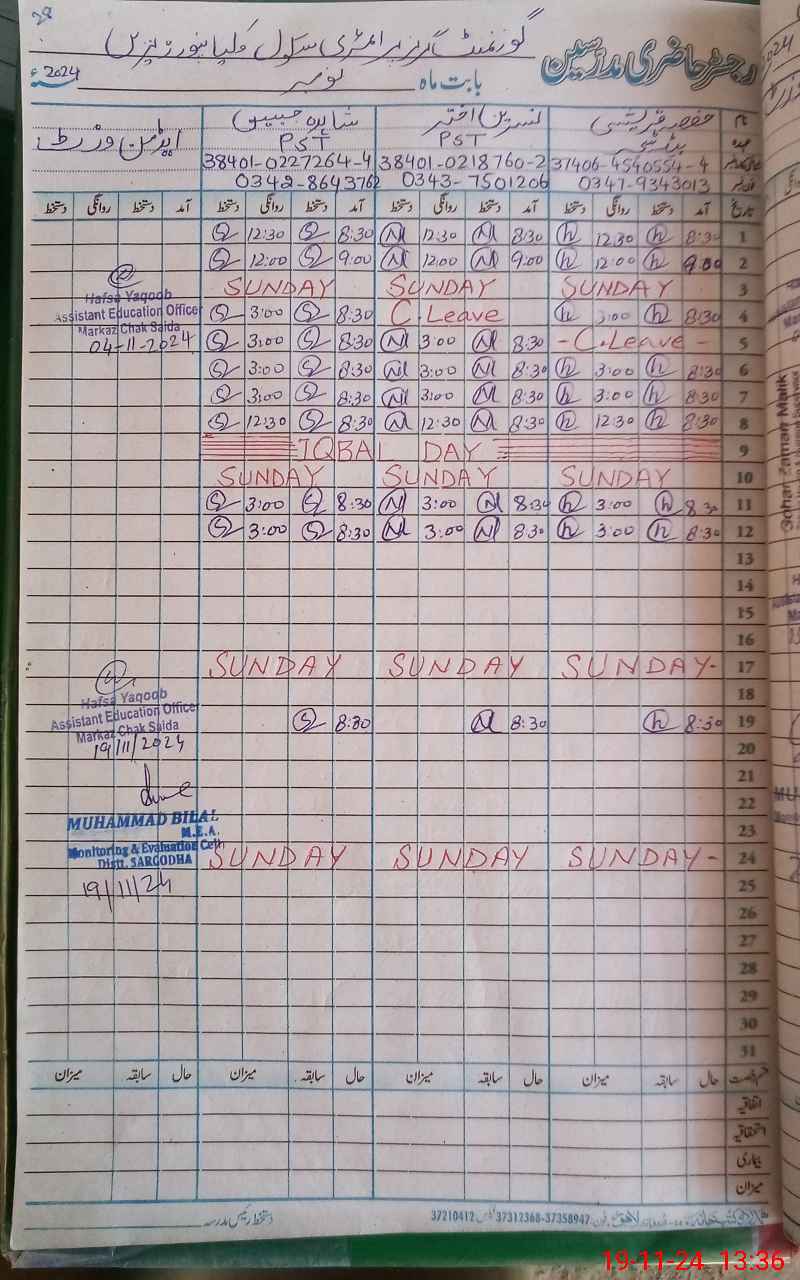 28
گورنمنٹ گرلز پرائمری سکول
رجسٹر حاضری مدرسین
بابت ماہ نومبر 2024ء
نام حفصہ قریشی نسرین اختر شاہدہ حبیب ایڈمن وزٹ
عہدہ PST PST
37406-4540554-4 38401-0218760-2 38401-0227264-4
0347-9343013 0343-7501206 0342-8643762
تاریخ آمد دستخط روانگی دستخط آمد دستخط روانگی دستخط آمد دستخط روانگی دستخط آمد دستخط روانگی دستخط
1 8:30 12:30 8:30 12:30 8:30 12:30
2 9:00 12:00 9:00 12:00 9:00 12:00
3 SUNDAY SUNDAY SUNDAY
4 8:30 3:00 C.Leave 8:30 3:00
Hafsa Yaqoob
Assistant Education Officer
Markaz Chak Saida
04-11-2024
5 -C.Leave- 8:30 3:00 8:30 3:00
6 8:30 3:00 8:30 3:00 8:30 3:00
7 8:30 3:00 8:30 3:00 8:30 3:00
8 8:30 12:30 8:30 12:30 8:30 12:30
9 IQBAL DAY
10 SUNDAY SUNDAY SUNDAY
11 8:30 3:00 8:30 3:00 8:30 3:00
12 8:30 3:00 8:30 3:00 8:30 3:00
13
14
15
16
17 SUNDAY SUNDAY SUNDAY-
18
19 8:30 8:30 8:30
Hafsa Yaqoob
Assistant Education Officer
Markaz Chak Saida
19/11/2024
20
21
22
23
24 SUNDAY SUNDAY SUNDAY-
MUHAMMAD BILAL
M.E.A.
Monitoring & Evaluation Cell
Distt. SARGODHA
19/11/24
25
26
27
28
29
30
31
قسم رخصت حال سابقہ میزان حال سابقہ میزان حال سابقہ میزان حال سابقہ میزان
اتفاقیہ
استحقاقیہ
بیماری
میزان
دستخط رئیس مدرسہ
37210412 37312368-37358947
Sohar Zaman Malik
19-11-24 13:36